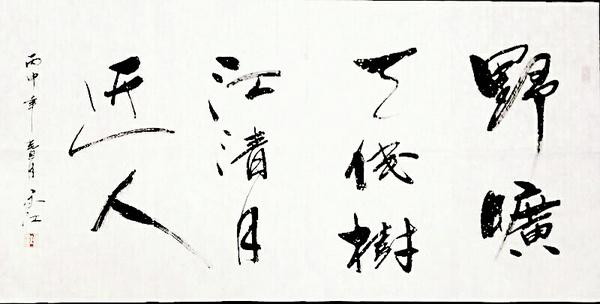 野曠
天低樹
江清月
近人
丙申年春月江